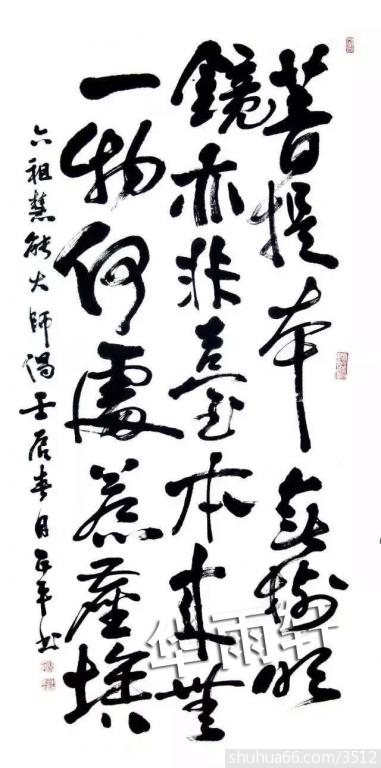 菩提本無樹明
鏡亦非臺本來無
一物何處惹塵埃
六祖慧能大師偈壬辰春月平书
华雨轩
shuhua66.com/3512